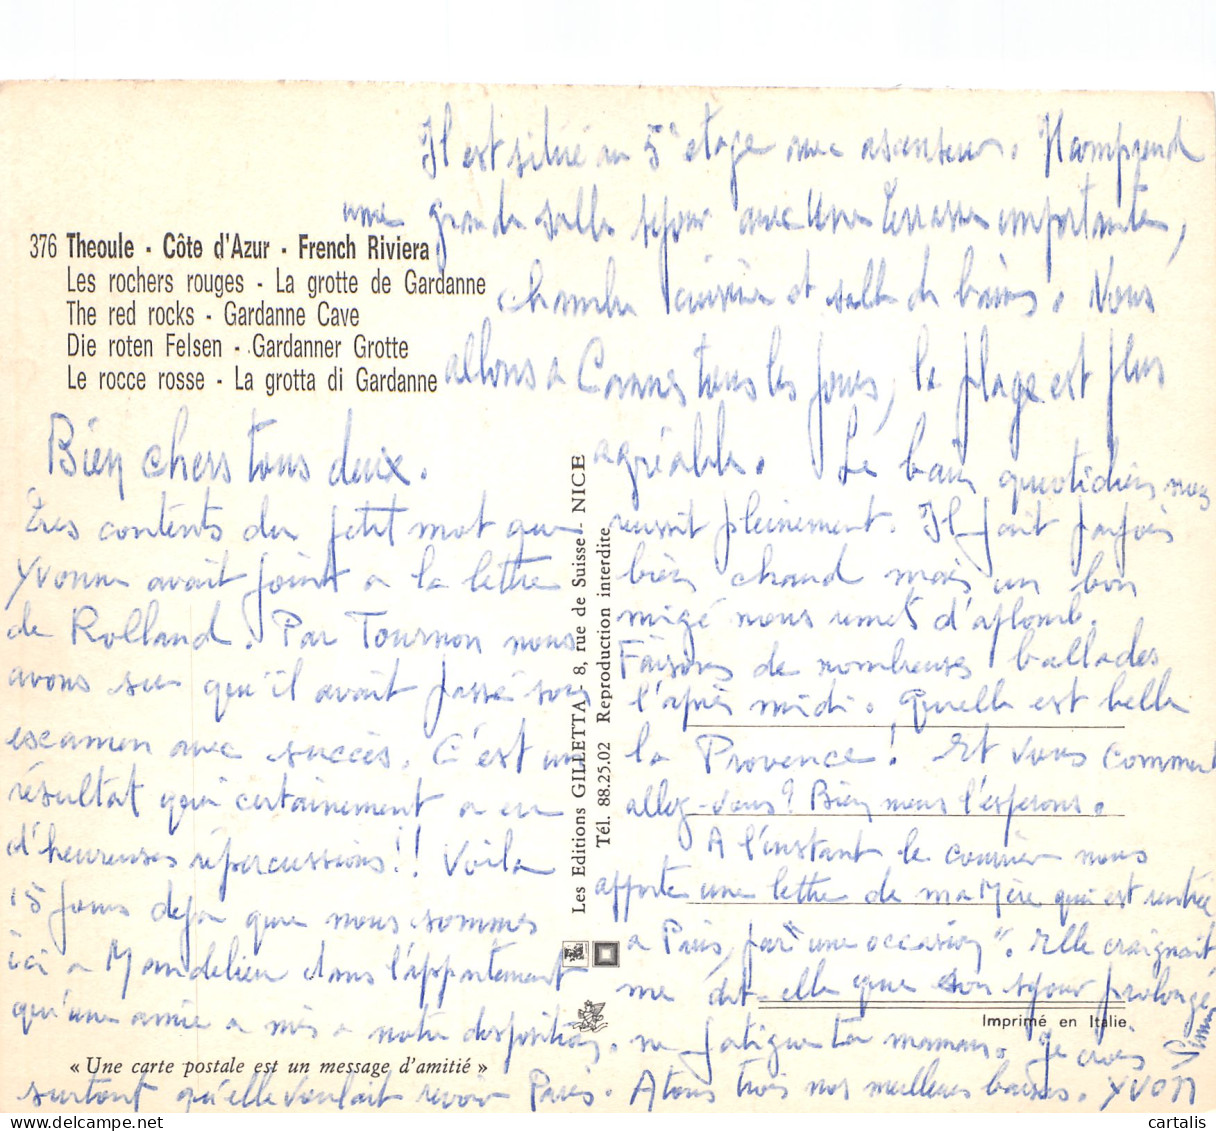 376 Theoule - Côte d'Azur - French Riviera
Les rochers rouges - La grotte de Gardanne
The red rocks - Gardanne Cave
Die roten Felsen - Gardanner Grotte
Le rocce rosse - La grotta di Gardanne
Bien chers tous deux.
Très contents du petit mot que
Yvonne avait joint a la lettre
de Rolland. Par Tournon nous
avons su qu'il avait passé son
escamen avec succès. C'est un
résultat qui certainement a eu
d'heureuses répercussions!! Voila
15 jours deja que nous sommes
ici a Mandelieu dans l'appartement
qu'une amie a mis a notre disposition.
Il est situé au 5e etage avec ascenseur. Il comprend
une grande salle sejour avec une terrasse importante,
chambre cuisine et salle de bains. Nous
allons a Cannes tous les jours, la plage est plus
agréable. Le bain quotidien nous
reussit pleinement. Il fait parfois
bien chaud mais un bon
nous remet d'aplomb.
Faisons de nombreuses ballades
l'après midi. Quelle est belle
la Provence! Et vous comment
allez-vous? Bien nous l'esperons.
A l'instant le courrier nous
apporte une lettre de ma Mère qui est rentrée
a Paris, par "une occasion". Elle craignait
me dit-elle que son sejour prolongé
ne fatigue ta maman. Je crois
surtout qu'elle voulait revoir Paris. A tous trois nos meilleurs baisers. Yvon
Les Editions GILLETTA - 8, rue de Suisse - NICE
Tél. 88.25.02 Reproduction interdite
Imprimé en Italie
« Une carte postale est un message d'amitié »
cartalis